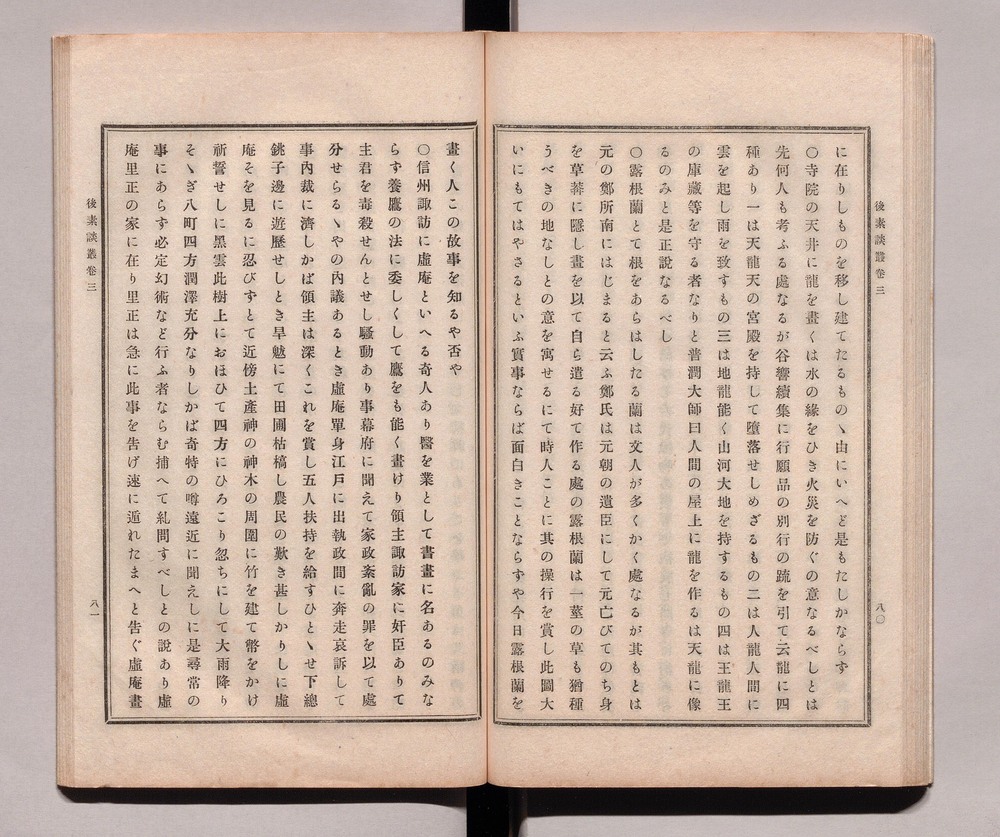 後素談叢卷三
八〇
に在りしものを移し建てたるものヽ由にいへど是もたしかならず
〇寺院の天井に龍を畫くは水の緣をひき火災を防ぐの意なるべしとは
先何人も考ふる處なるが谷響續集に行願品の別行の疏を引て云龍に四
種あり一は天龍天の宮殿を持して墮落せしめざるもの二は人龍人間に
雲を起し雨を致すもの三は地龍能く山河大地を持するもの四は王龍王
の庫藏等を守る者なりと普潤大師曰人間の屋上に龍を作るは天龍に像
るのみと是正說なるべし
〇露根蘭とて根をあらはしたる蘭は文人が多くかく處なるが其もとは
元の鄭所南にはじまると云ふ鄭氏は元朝の遺臣にして元亡びてのち身
を草莽に隱し畫を以て自ら遣る好て作る處の露根蘭は一莖の草も猶種
うべきの地なしとの意を寓せるにて時人ことに其の操行を賞し此圖大
いにもてはやさるといふ實事ならば面白きことならずや今日露根蘭を
畫く人この故事を知るや否や
〇信州諏訪に虛庵といへる奇人あり醫を業として書畫に名あるのみな
らず養鷹の法に委しくして鷹をも能く畫けり領主諏訪家に奸臣ありて
主君を毒殺せんとせし騷動あり事幕府に聞えて家政紊亂の罪を以て處
分せらるヽやの內議あるとき虛庵單身江戶に出執政間に奔走哀訴して
事內裁に濟しかば領主は深くこれを賞し五人扶持を給すひとヽせ下總
銚子邊に遊歷せしとき旱魃にて田圃枯槁し農民の歎き甚しかりしに虛
庵そを見るに忍びずとて近傍土產神の神木の周圍に竹を建て幣をかけ
祈誓せしに黑雲此樹上におほひて四方にひろごり忽ちにして大雨降り
そヽぎ八町四方潤澤充分なりしかば奇特の噂遠近に聞えしに是尋常の
事にあらず必定幻術など行ふ者ならむ捕へて糺問すべしとの說あり虛
庵里正の家に在り里正は急に此事を告げ速に遁れたまへと告ぐ虛庵畫
後素談叢卷三
八一